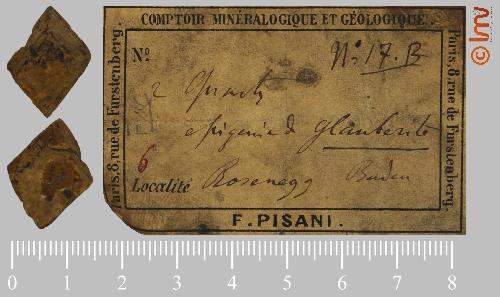 COMPTOIR MINÉRALOGIQUE ET GÉOLOGIQUE.
Paris, 8, rue de Furstenberg.
Nº
Nº 17. B
2 Quartz
epigenie de Glauberite
6
Localité Rosenegg Baden
F. PISANI.
Paris, 8, rue de Furstenberg.
lmv
0 1 2 3 4 5 6 7 8